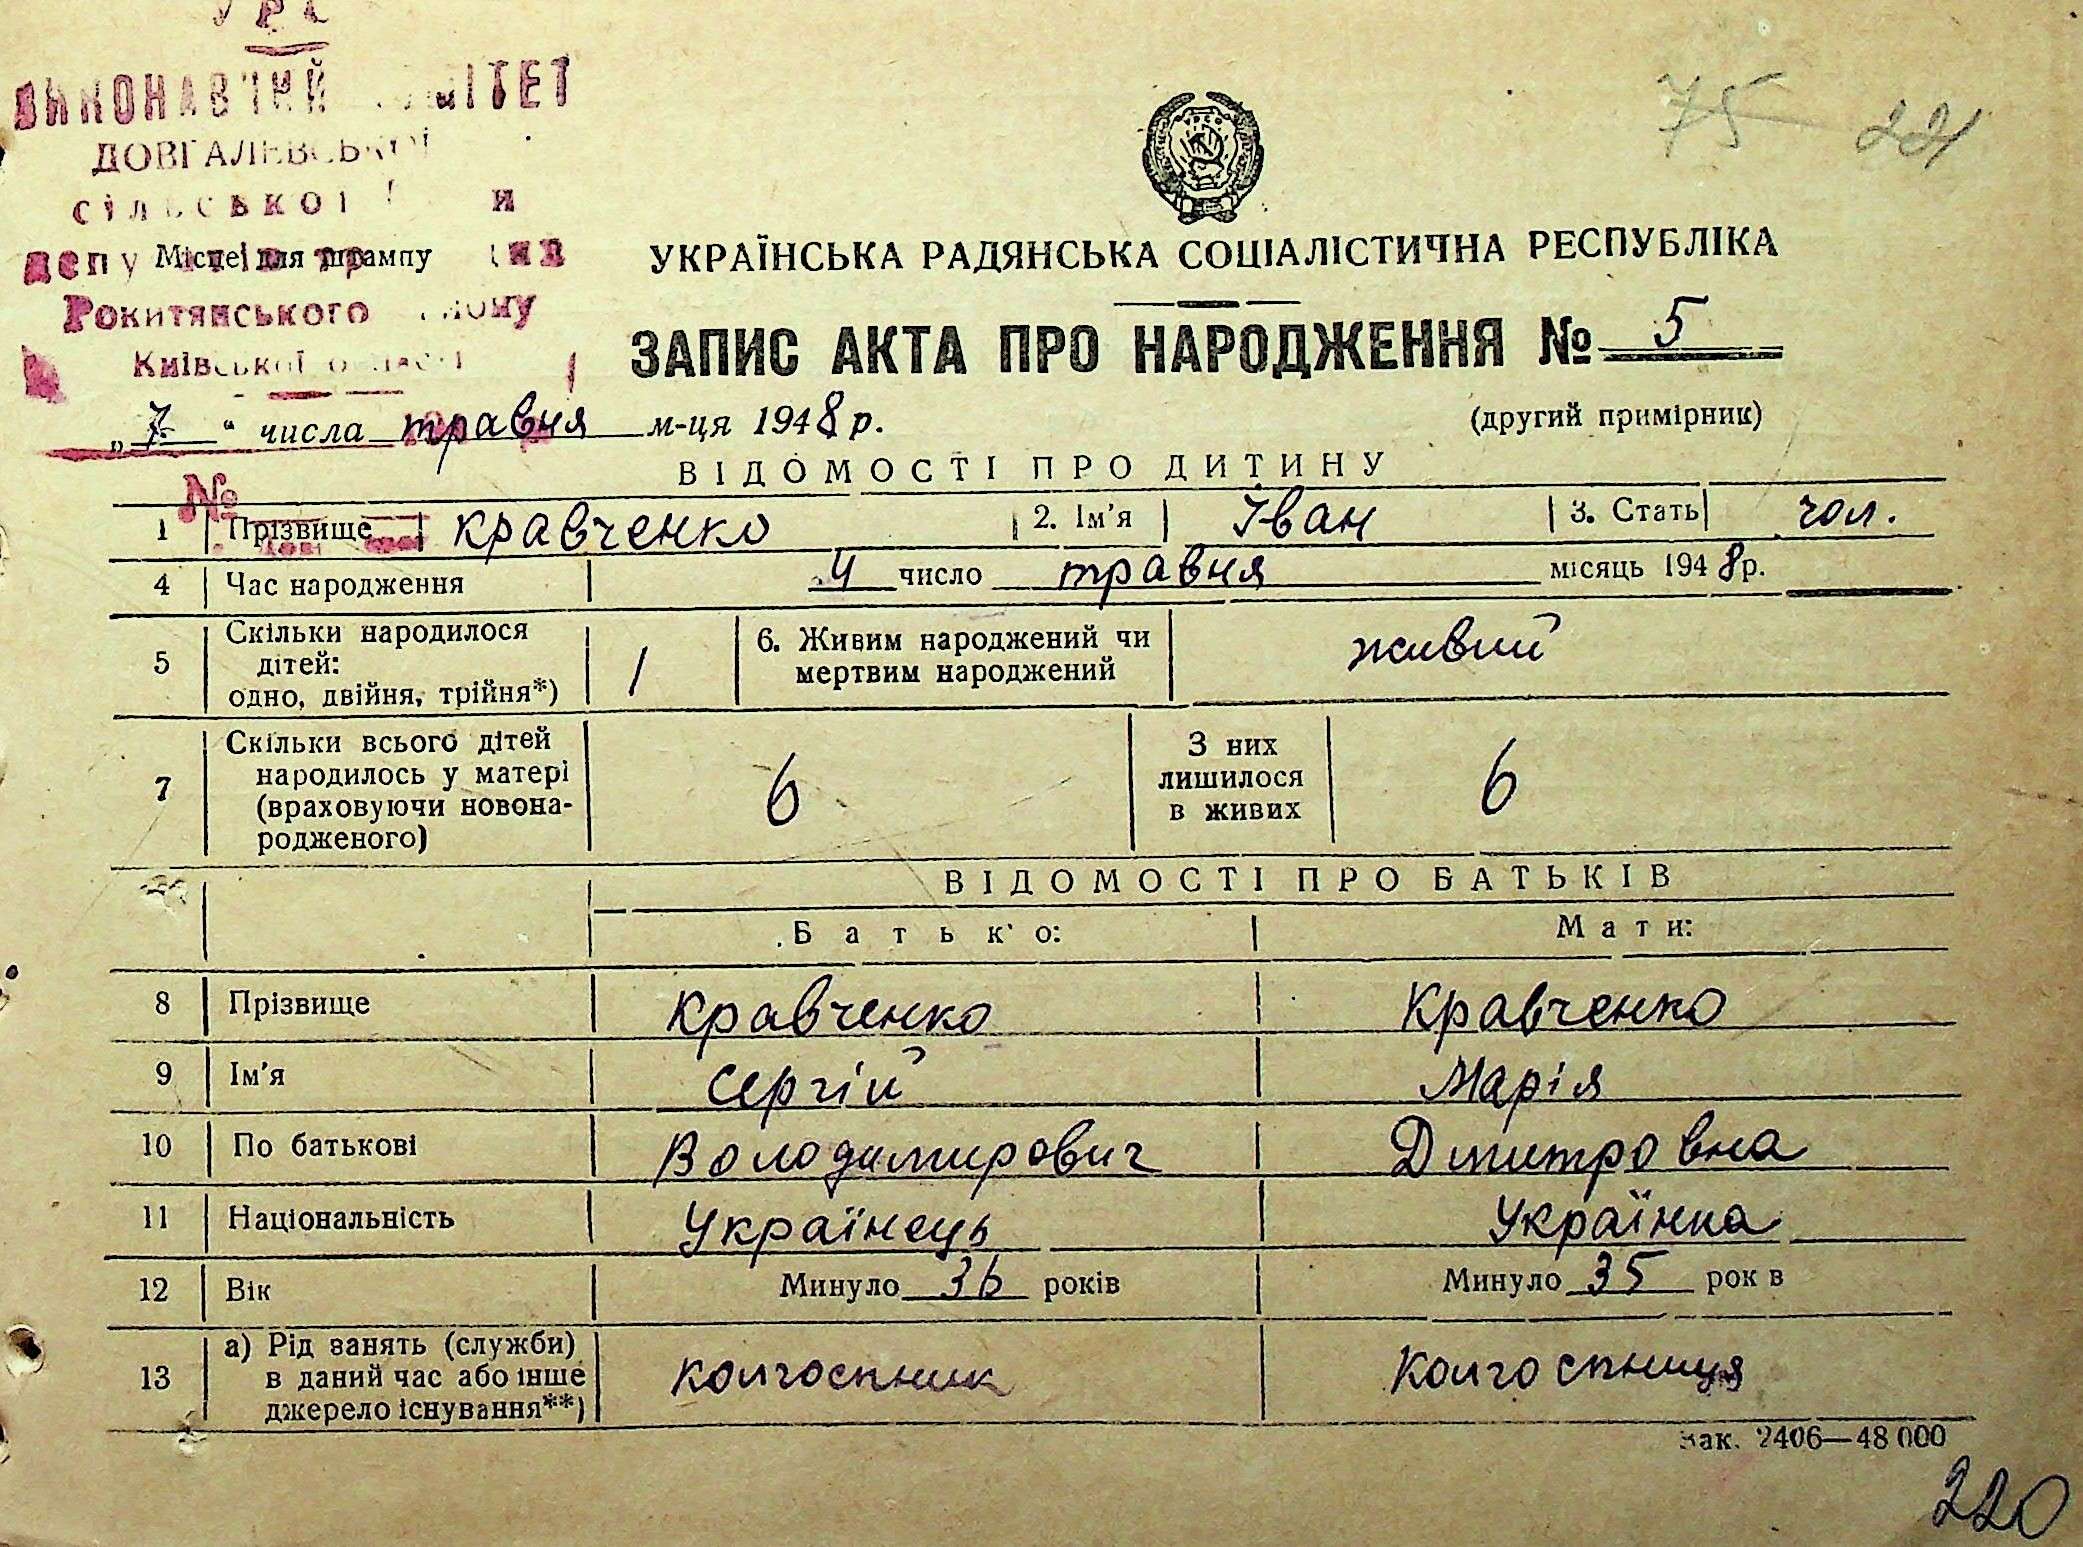 УРС
ВИКОНАВЧИЙ КОМІТЕТ
ДОВГАЛЕВСЬКОЇ
сільської
депу
Місце для штампу
Рокитянського району
Київської області
75 221
УКРАЇНСЬКА РАДЯНСЬКА СОЦІАЛІСТИЧНА РЕСПУБЛІКА
ЗАПИС АКТА ПРО НАРОДЖЕННЯ № 5
„7“ числа травня м-ця 1948 р.
(другий примірник)
ВІДОМОСТІ ПРО ДИТИНУ
№
1 Прізвище Кравченко 2. Ім'я Іван 3. Стать чол.
4 Час народження 4 число травня місяць 1948 р.
5 Скільки народилося дітей: одно, двійня, трійня*) 1 6. Живим народжений чи мертвим народжений живий
7 Скільки всього дітей народилось у матері (враховуючи новона-родженого) 6 З них лишилося в живих 6
ВІДОМОСТІ ПРО БАТЬКІВ
Батько: Мати:
8 Прізвище Кравченко Кравченко
9 Ім'я Сергій Марія
10 По батькові Володимирович Дмитровна
11 Національність Українець Українка
12 Вік Минуло 36 років Минуло 35 рок в
13 а) Рід занять (служби) в даний час або інше джерело існування**) колгоспник Колгоспниця
Зак. 2406—48 000
220